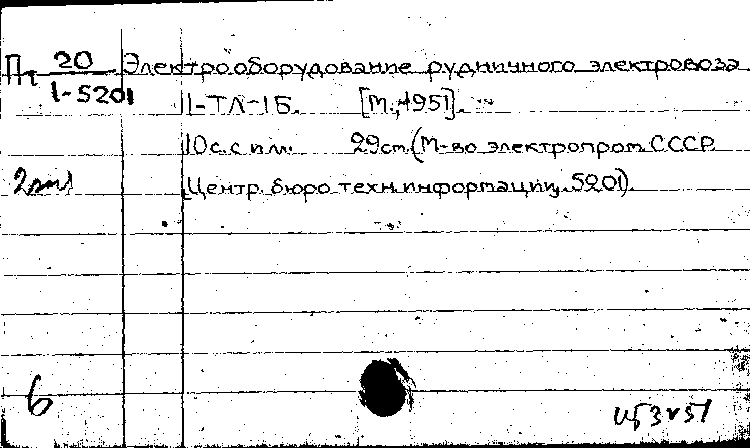 Пт 20/1-5201 Электрооборудование рудничного электровоза
1-ТЛ-1Б. [М., 1951].
10 с. с илл. 29 см. (М-во электропром. СССР
2 экз
Центр. бюро техн. информации, 5201).
6